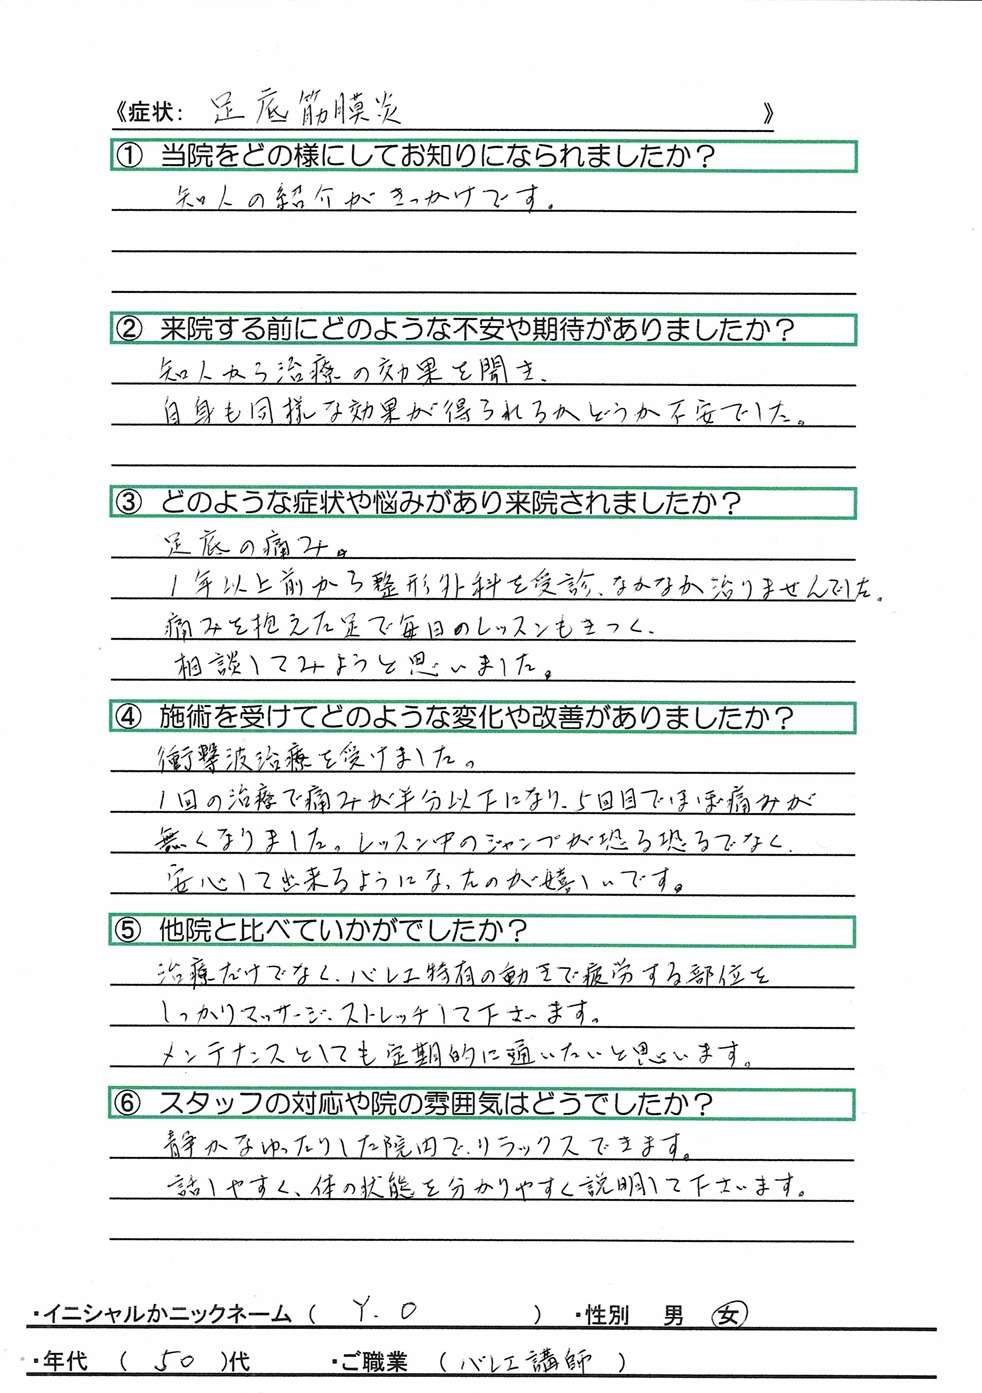 《症状: 足底筋膜炎 》
① 当院をどの様にしてお知りになられましたか？
知人の紹介がきっかけです。
② 来院する前にどのような不安や期待がありましたか？
知人から治療の効果を聞き、
自身も同様な効果が得られるかどうか不安でした。
③ どのような症状や悩みがあり来院されましたか？
足底の痛み。
1年以上前から整形外科を受診、なかなか治りませんでした。
痛みを抱えた足で毎日のレッスンもきつく、
相談してみようと思いました。
④ 施術を受けてどのような変化や改善がありましたか？
衝撃波治療を受けました。
1回の治療で痛みが半分以下になり、5回目でほぼ痛みが
無くなりました。レッスン中のジャンプが恐る恐るでなく、
安心して出来るようになったのが嬉しいです。
⑤ 他院と比べていかがでしたか？
治療だけでなく、バレエ特有の動きで疲労する部位を
しっかりマッサージ、ストレッチして下さいます。
メンテナンスとしても定期的に通いたいと思います。
⑥ スタッフの対応や院の雰囲気はどうでしたか？
静かなゆったりした院内で、リラックスできます。
話しやすく、体の状態を分かりやすく説明して下さいます。
・イニシャルかニックネーム ( Y.O ) ・性別 男 女
・年代 ( 50 )代 ・ご職業 ( バレエ講師 )